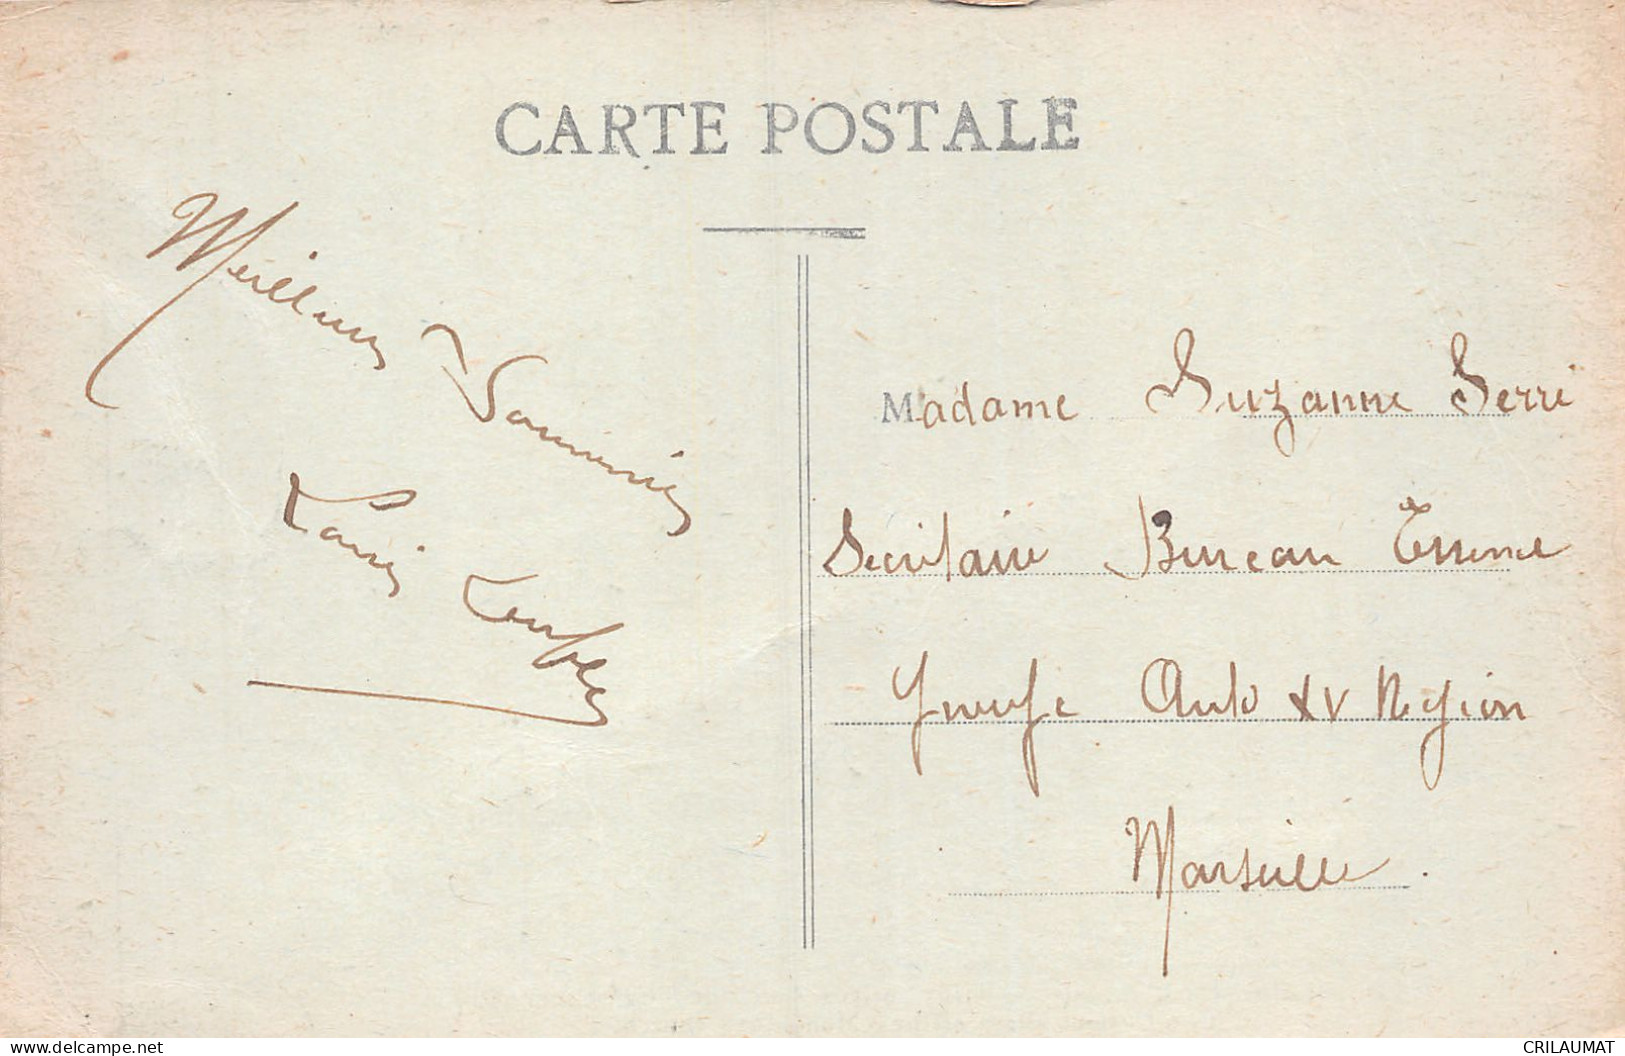 CARTE POSTALE
Meilleurs Souvenirs
Louis
Madame Suzanne Serre
Secrétaire Bureau Essence
Groupe Auto XV Région
Marseille.
CRILAUMAT